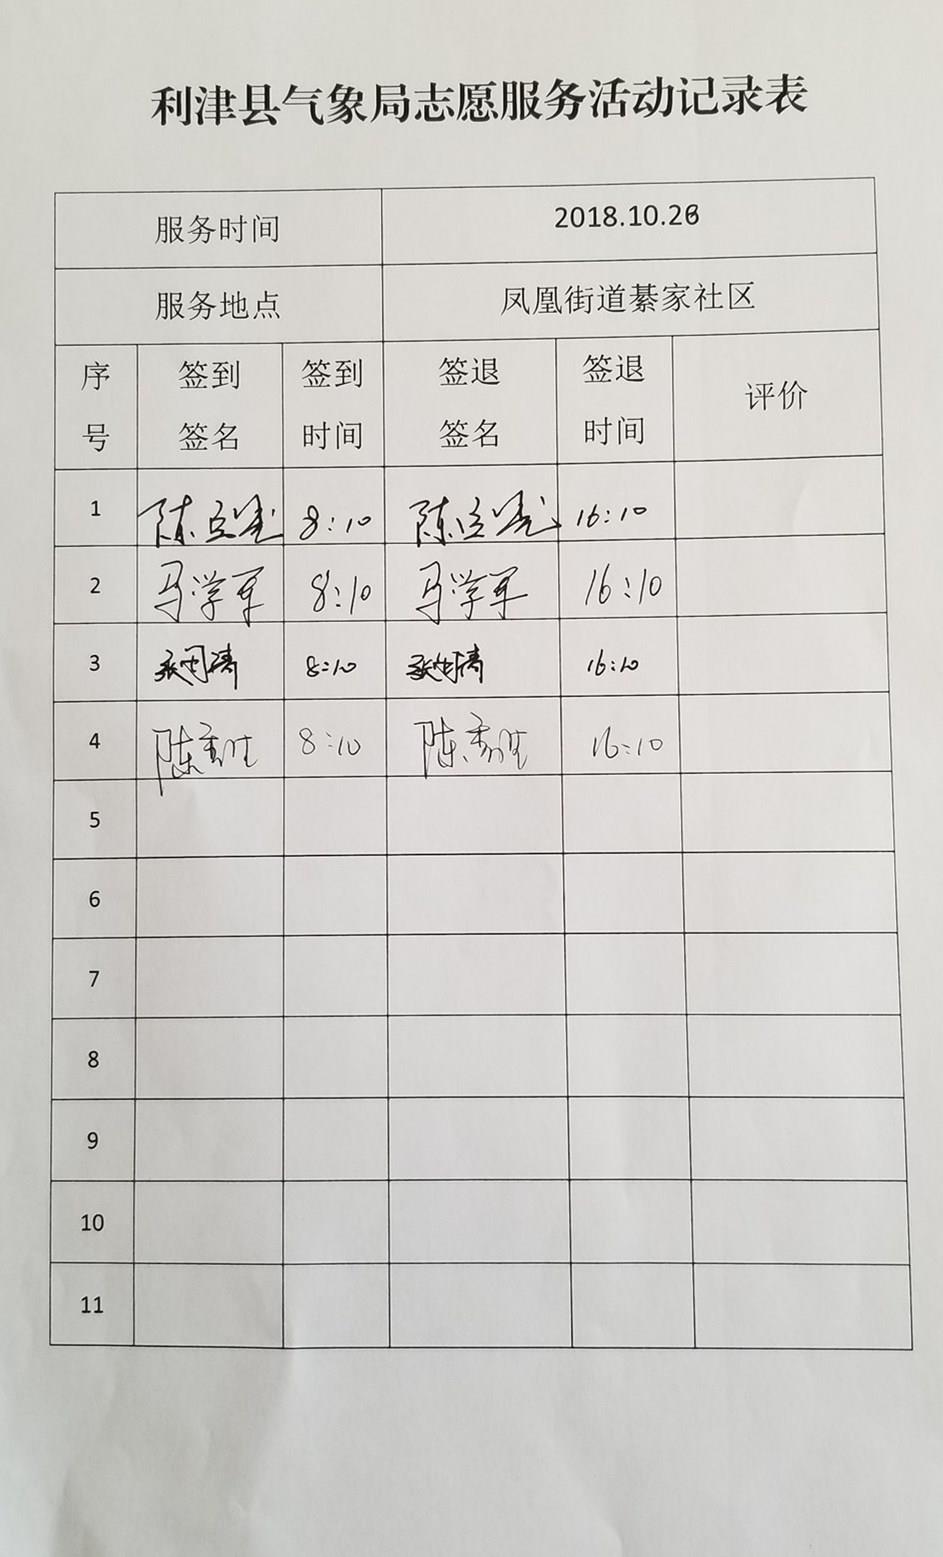 利津县气象局志愿服务活动记录表
服务时间 2018.10.26
服务地点 凤凰街道綦家社区
序号 签到签名 签到时间 签退签名 签退时间 评价
1 8:10 16:10
2 马学军 8:10 马学军 16:10
3 8:10 16:10
4 8:10 16:10
5
6
7
8
9
10
11